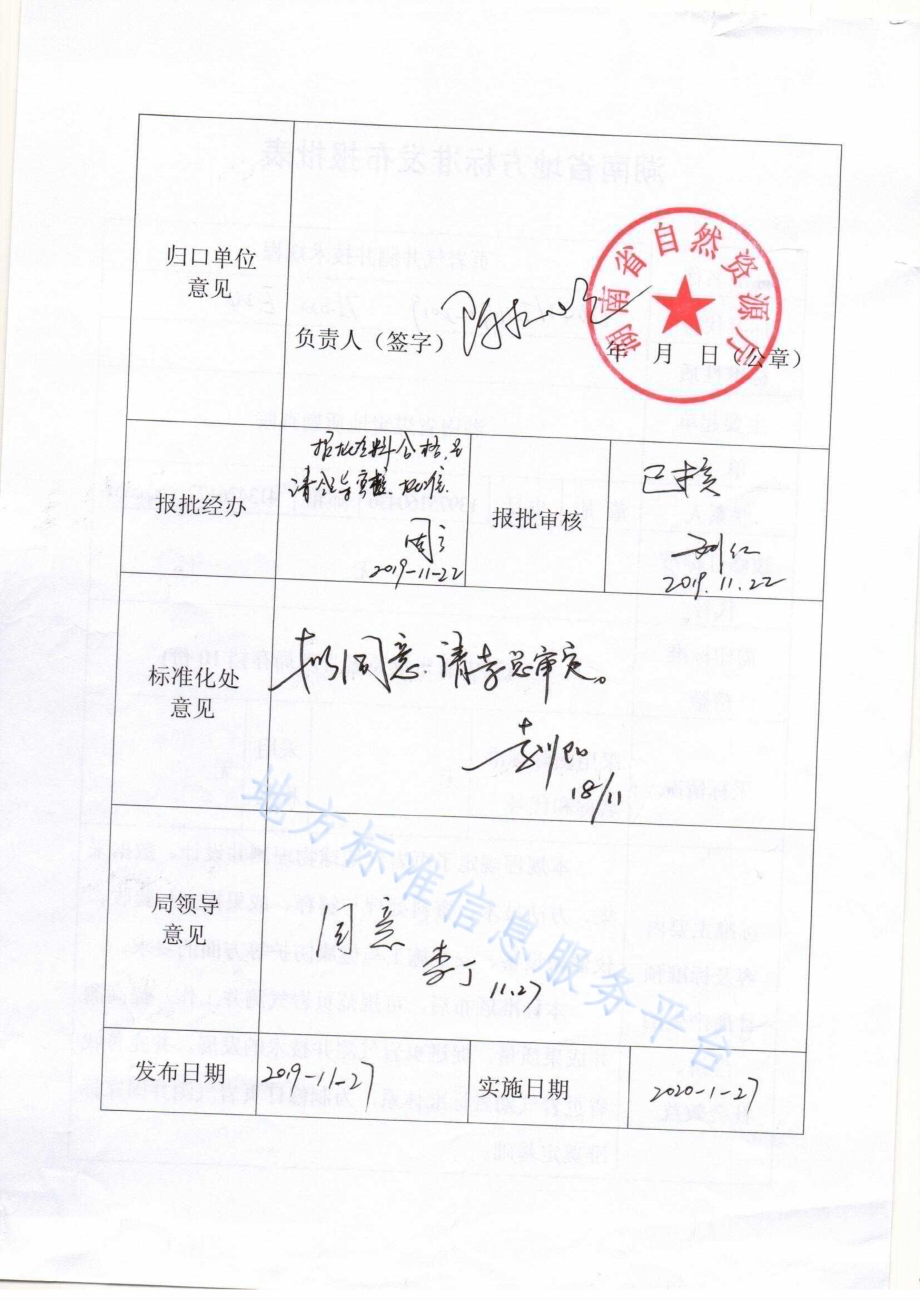 湖南省自然资源厅
归口单位
意见
负责人（签字）
年 月 日（公章）
报批经办
报批材料合格,呈
请领导审核、批准.
2019-11-22
报批审核
已核
2019.11.22
标准化处
意见
拟同意,请李总审定。
18/11
局领导
意见
同意
李丁 11.27
地方标准信息服务平台
发布日期
2019-11-27
实施日期
2020-1-27